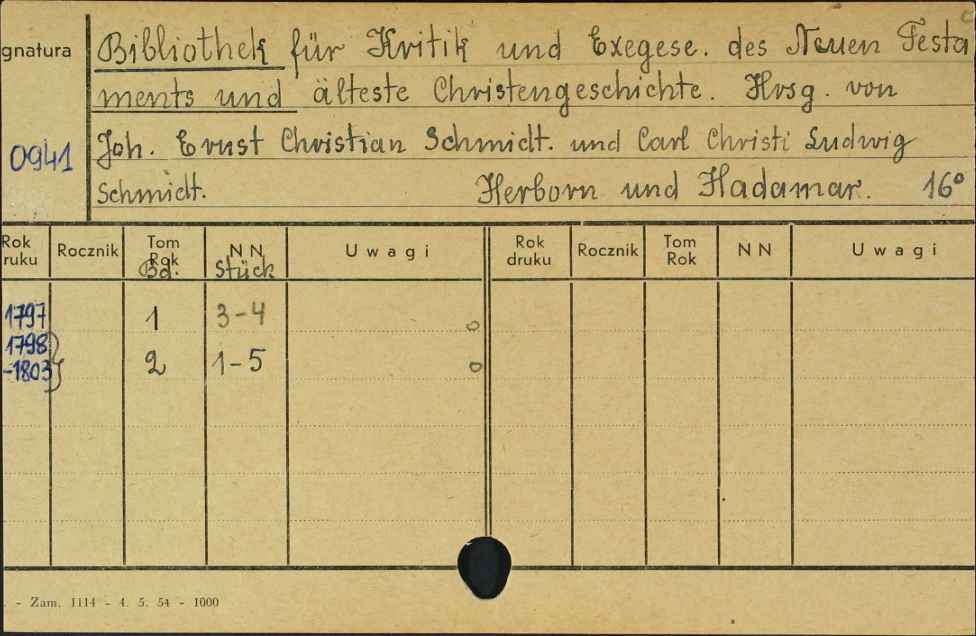 gnatura
0941
Bibliothek für Kritik und Exegese. des Neuen Festa
ments und älteste Christengeschichte. Hrsg. von
Joh. Ernst Christian Schmidt. und Carl Christi Ludwig
Schmidt. Herborn und Hadamar. 16°
Rok ruku Rocznik Tom Rok Bd. NN Stück Uwagi Rok druku Rocznik Tom Rok NN Uwagi
1797 1 3-4 o
1798
-1803 2 1-5 o
. - Zam. 1114 - 4. 5. 54 - 1000